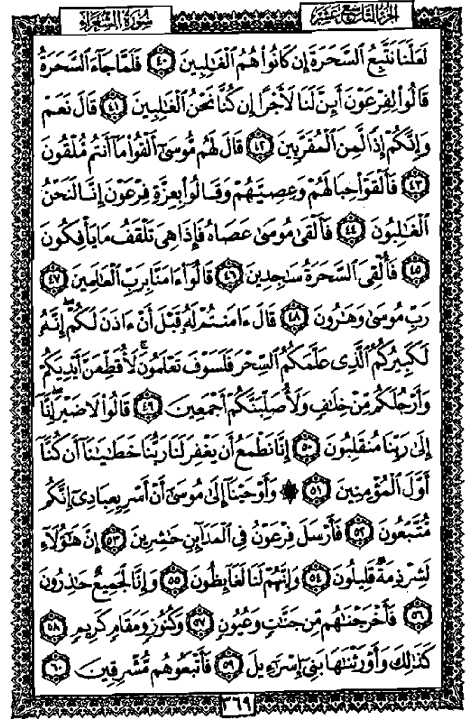 الجزء التاسع عشر
سُورَةُ الشُّعَرَاءِ
لَعَلَّنَا نَتَّبِعُ السَّحَرَةَ إِن كَانُوا۟ هُمُ الْغَٰلِبِينَ ٤٠ فَلَمَّا جَآءَ السَّحَرَةُ
قَالُوا۟ لِفِرْعَوْنَ أَئِنَّ لَنَا لَأَجْرًا إِن كُنَّا نَحْنُ الْغَٰلِبِينَ ٤١ قَالَ نَعَمْ
وَإِنَّكُمْ إِذًا لَّمِنَ الْمُقَرَّبِينَ ٤٢ قَالَ لَهُم مُّوسَىٰٓ أَلْقُوا۟ مَآ أَنتُم مُّلْقُونَ
٤٣ فَأَلْقَوْا۟ حِبَالَهُمْ وَعِصِيَّهُمْ وَقَالُوا۟ بِعِزَّةِ فِرْعَوْنَ إِنَّا لَنَحْنُ
الْغَٰلِبُونَ ٤٤ فَأَلْقَىٰ مُوسَىٰ عَصَاهُ فَإِذَا هِىَ تَلْقَفُ مَا يَأْفِكُونَ
٤٥ فَأُلْقِىَ السَّحَرَةُ سَٰجِدِينَ ٤٦ قَالُوٓا۟ ءَامَنَّا بِرَبِّ الْعَٰلَمِينَ ٤٧
رَبِّ مُوسَىٰ وَهَٰرُونَ ٤٨ قَالَ ءَامَنتُمْ لَهُۥ قَبْلَ أَنْ ءَاذَنَ لَكُمْ ۖ إِنَّهُۥ
لَكَبِيرُكُمُ الَّذِى عَلَّمَكُمُ السِّحْرَ فَلَسَوْفَ تَعْلَمُونَ ۚ لَأُقَطِّعَنَّ أَيْدِيَكُمْ
وَأَرْجُلَكُم مِّنْ خِلَٰفٍ وَلَأُصَلِّبَنَّكُمْ أَجْمَعِينَ ٤٩ قَالُوا۟ لَا ضَيْرَ ۖ إِنَّآ
إِلَىٰ رَبِّنَا مُنقَلِبُونَ ٥٠ إِنَّا نَطْمَعُ أَن يَغْفِرَ لَنَا رَبُّنَا خَطَٰيَٰنَآ أَن كُنَّآ
أَوَّلَ الْمُؤْمِنِينَ ٥١ ۞ وَأَوْحَيْنَآ إِلَىٰ مُوسَىٰٓ أَنْ أَسْرِ بِعِبَادِىٓ إِنَّكُم
مُّتَّبَعُونَ ٥٢ فَأَرْسَلَ فِرْعَوْنُ فِى الْمَدَآئِنِ حَٰشِرِينَ ٥٣ إِنَّ هَٰٓؤُلَآءِ
لَشِرْذِمَةٌ قَلِيلُونَ ٥٤ وَإِنَّهُمْ لَنَا لَغَآئِظُونَ ٥٥ وَإِنَّا لَجَمِيعٌ حَٰذِرُونَ
٥٦ فَأَخْرَجْنَٰهُم مِّن جَنَّٰتٍ وَعُيُونٍ ٥٧ وَكُنُوزٍ وَمَقَامٍ كَرِيمٍ ٥٨
كَذَٰلِكَ وَأَوْرَثْنَٰهَا بَنِىٓ إِسْرَٰٓءِيلَ ٥٩ فَأَتْبَعُوهُم مُّشْرِقِينَ ٦٠
٣٦٩